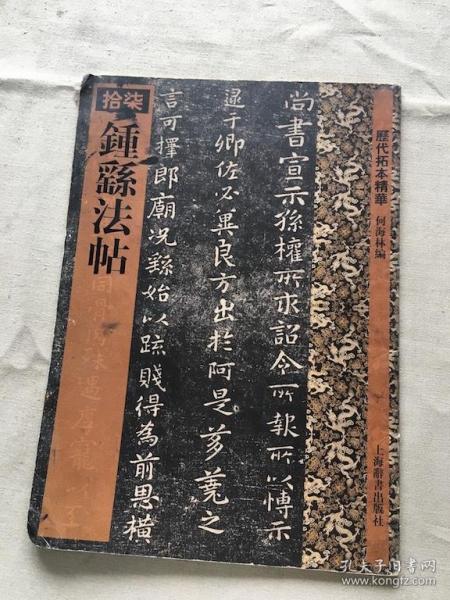 歷代拓本精華
何海林編
上海辭書出版社
尚書宣示孫權所求詔令所報所以博示
逮于卿佐必異良方出於阿是芻蕘之
言可擇郎廟況繇始以疏賤得為前恩橫
拾柒
鍾繇法帖
孔夫子旧书网
www.kongfz.com